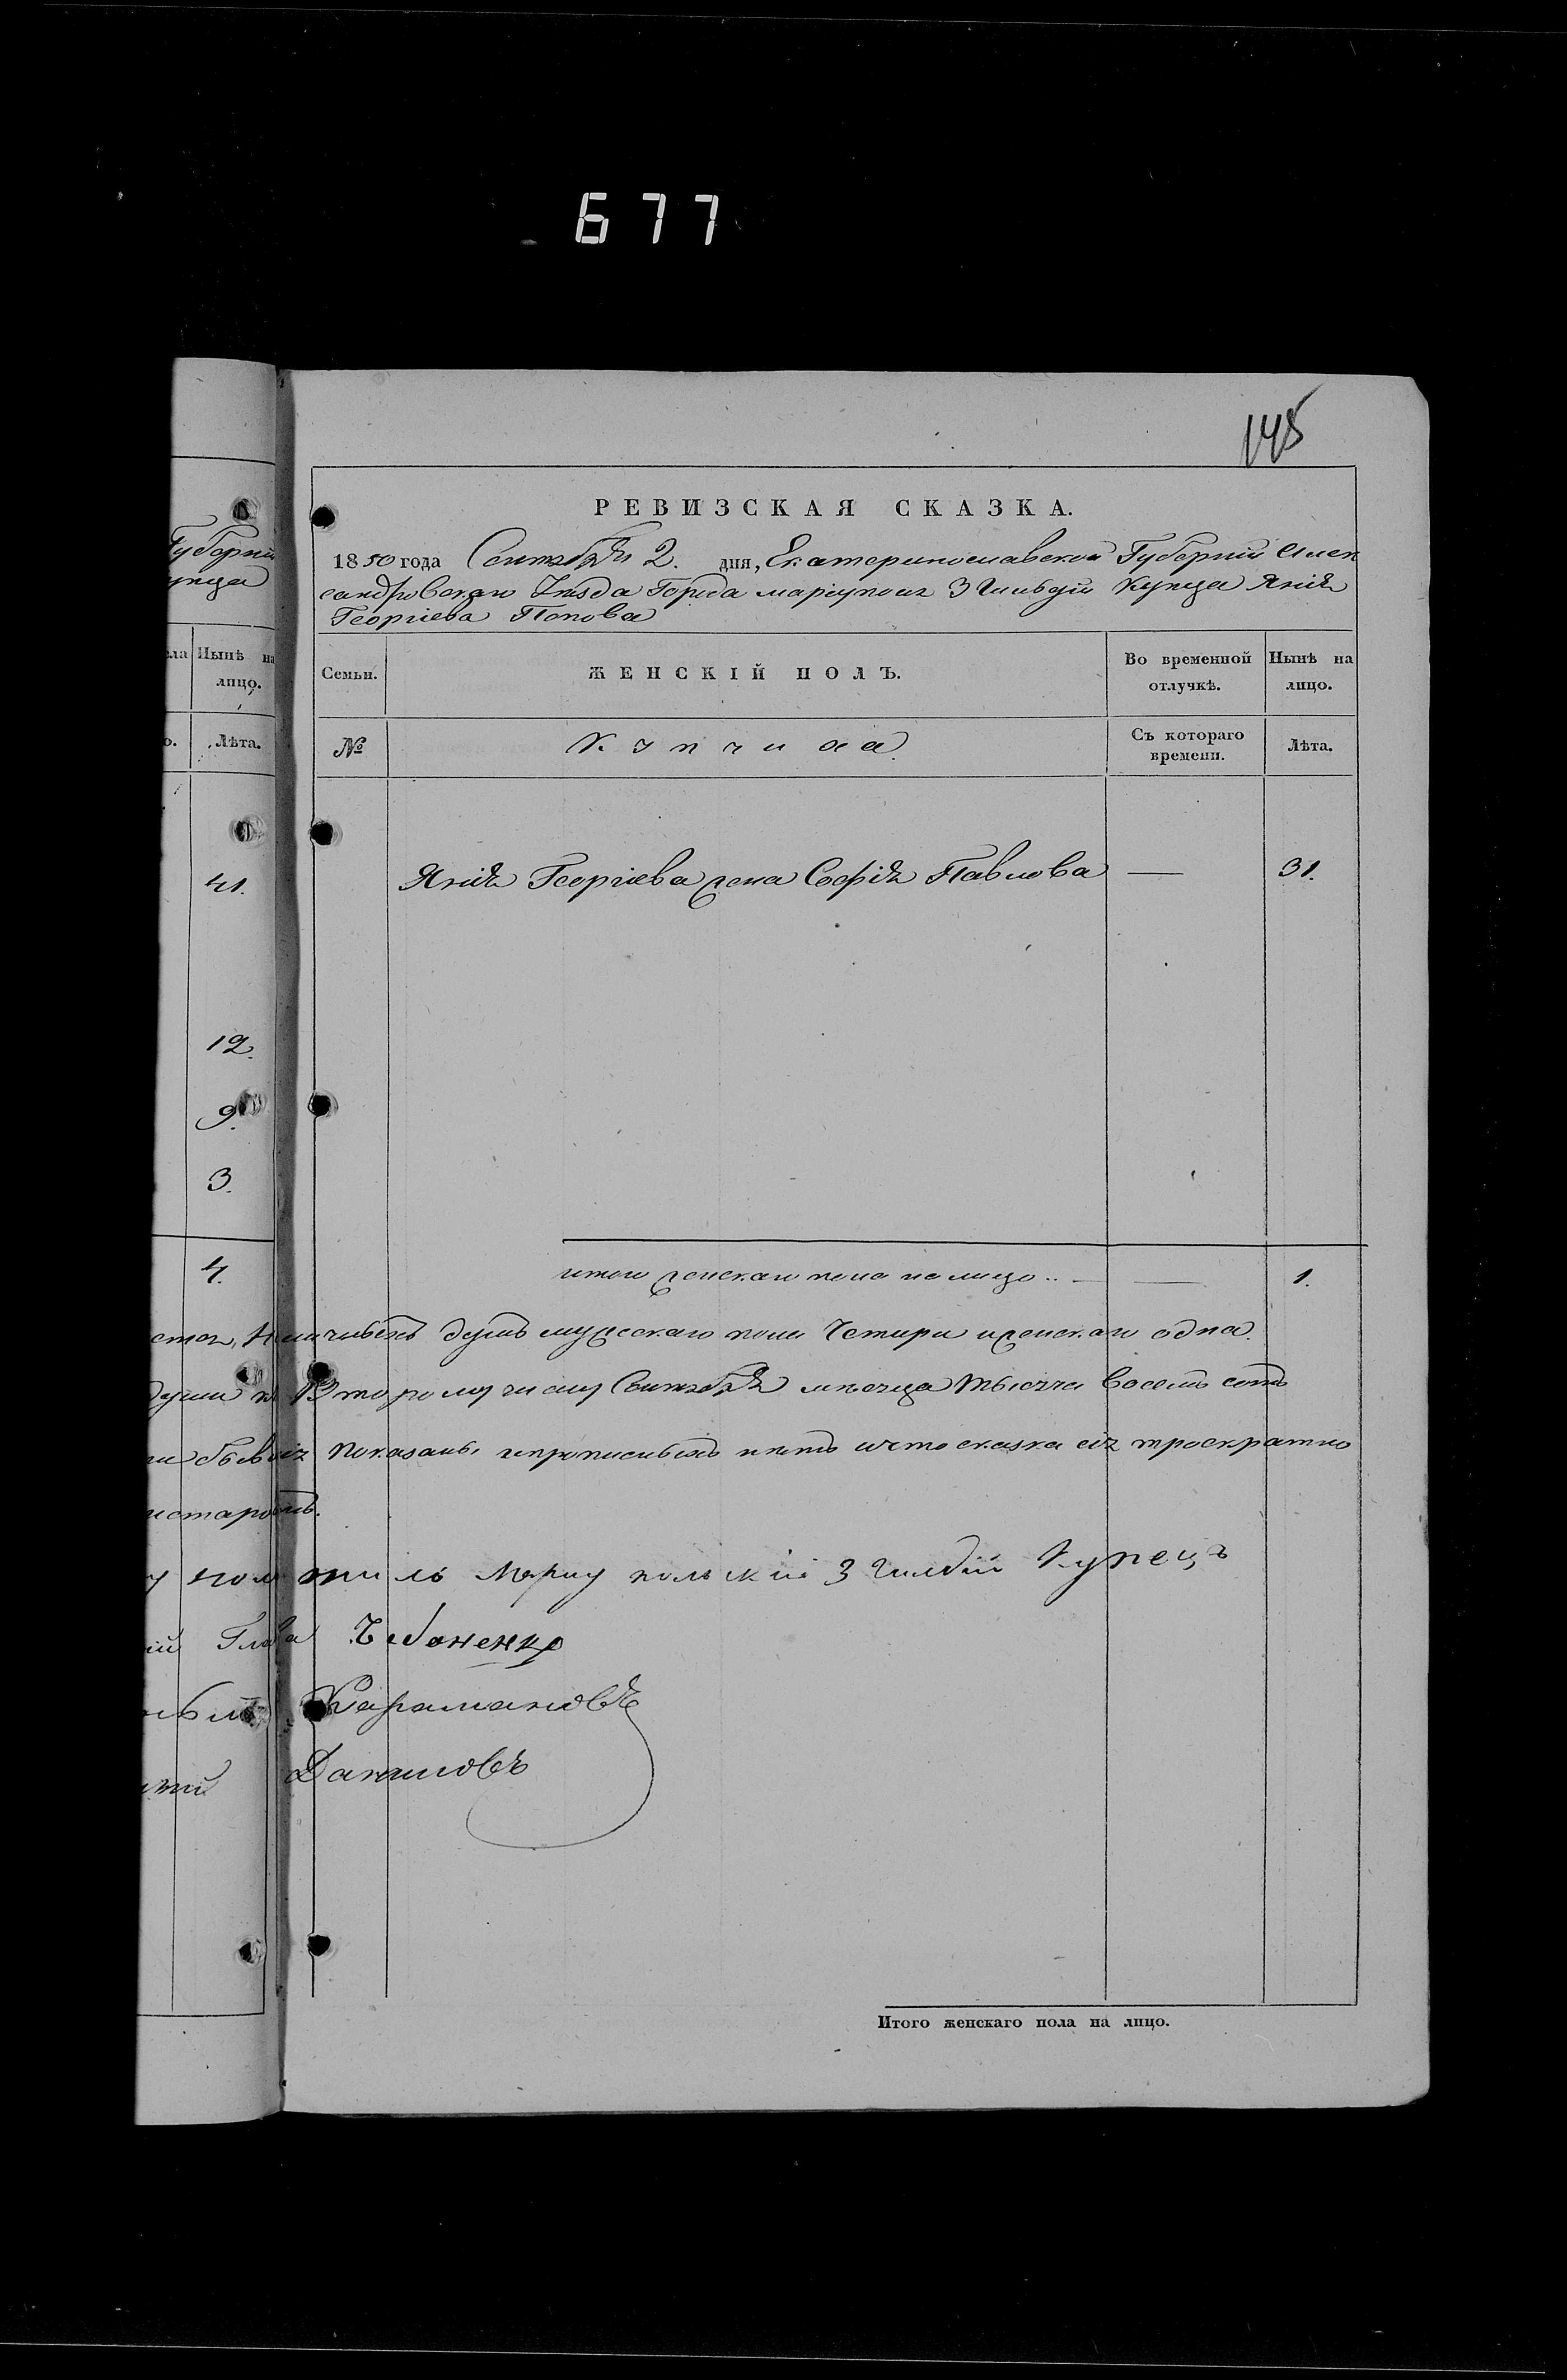 677
145
Губерніи
упца
ла Нынѣ на
лицо.
о. Лѣта.
41.
12.
9.
3.
4.
РЕВИЗСКАЯ СКАЗКА.
1850 года Сентября 2. дня, Екатеринославской Губерніи Алек
сандровскаго Уѣзда Города маріуполя 3 Гильдіи Купца Янія
Георгіева Попова
Семьи. ЖЕНСКІЙ ПОЛЪ. Во временной отлучкѣ. Нынѣ на лицо.
№ Купчиха Съ котораго времени. Лѣта.
Янія Георгіева жена Софія Павлова — 31.
итого женскаго пола на лицо .. — — 1.
наличныхъ душъ мужескаго пола Четыри и женскаго одна.
души к Второму числу Сентября мѣсяца тысяча восемь сотъ
показаны и прописныхъ нѣтъ и что сказка сія троекратно
Маріупольскій 3 Гилдіи Купецъ
ій Глава Чебаненко
Караманов
Данилов
Итого женскаго пола на лицо.